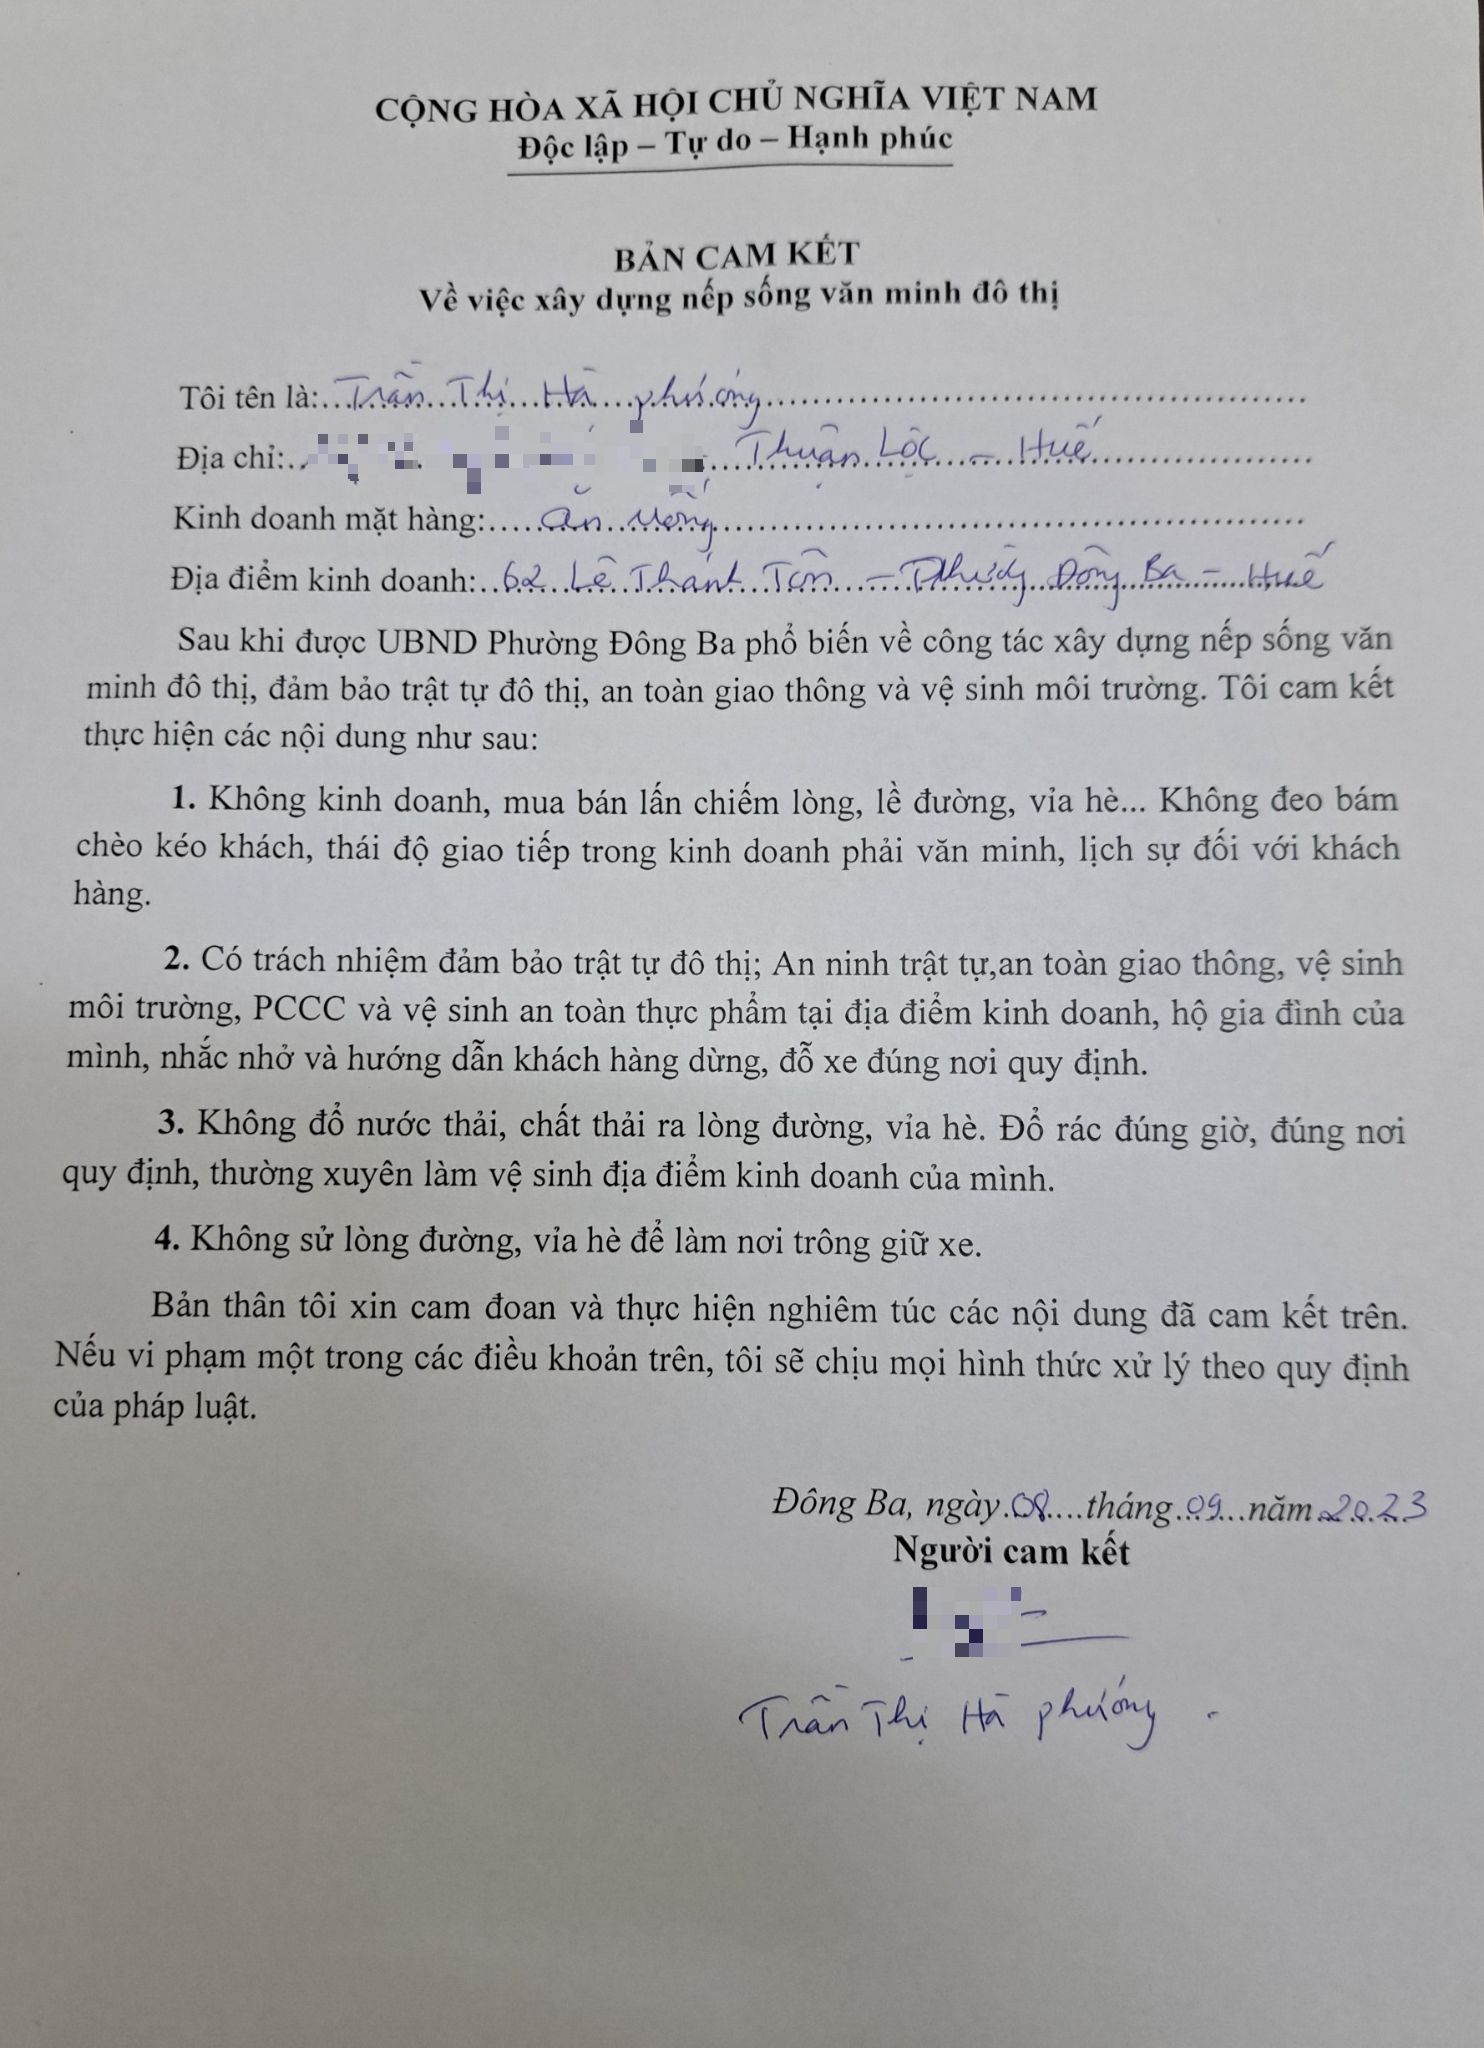 CỘNG HÒA XÃ HỘI CHỦ NGHĨA VIỆT NAM
Độc lập – Tự do – Hạnh phúc
BẢN CAM KẾT
Về việc xây dựng nếp sống văn minh đô thị
Tôi tên là: Trần Thị Hà Phương
Địa chỉ: Thuận Lộc – Huế
Kinh doanh mặt hàng: ăn uống
Địa điểm kinh doanh: 62 Lê Thánh Tôn – Phường Đông Ba – Huế
Sau khi được UBND Phường Đông Ba phổ biến về công tác xây dựng nếp sống văn
minh đô thị, đảm bảo trật tự đô thị, an toàn giao thông và vệ sinh môi trường. Tôi cam kết
thực hiện các nội dung như sau:
1. Không kinh doanh, mua bán lấn chiếm lòng, lề đường, vỉa hè... Không đeo bám
chèo kéo khách, thái độ giao tiếp trong kinh doanh phải văn minh, lịch sự đối với khách
hàng.
2. Có trách nhiệm đảm bảo trật tự đô thị; An ninh trật tự,an toàn giao thông, vệ sinh
môi trường, PCCC và vệ sinh an toàn thực phẩm tại địa điểm kinh doanh, hộ gia đình của
mình, nhắc nhở và hướng dẫn khách hàng dừng, đỗ xe đúng nơi quy định.
3. Không đổ nước thải, chất thải ra lòng đường, vỉa hè. Đổ rác đúng giờ, đúng nơi
quy định, thường xuyên làm vệ sinh địa điểm kinh doanh của mình.
4. Không sử lòng đường, vỉa hè để làm nơi trông giữ xe.
Bản thân tôi xin cam đoan và thực hiện nghiêm túc các nội dung đã cam kết trên.
Nếu vi phạm một trong các điều khoản trên, tôi sẽ chịu mọi hình thức xử lý theo quy định
của pháp luật.
Đông Ba, ngày 08 tháng 09 năm 2023
Người cam kết
Trần Thị Hà Phương